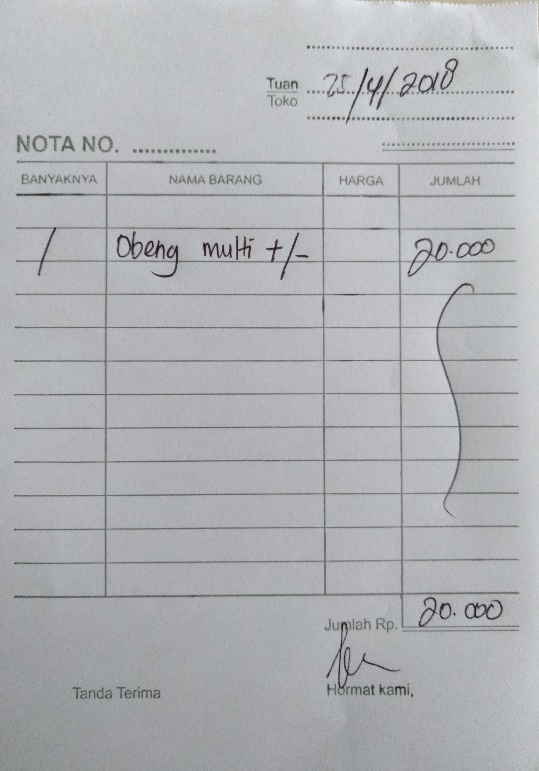 Tuan 25/4/2018
Toko
NOTA NO. ..............
BANYAKNYA NAMA BARANG HARGA JUMLAH
1 Obeng multi +/- 20.000
Jumlah Rp. 20.000
Tanda Terima Hormat kami,